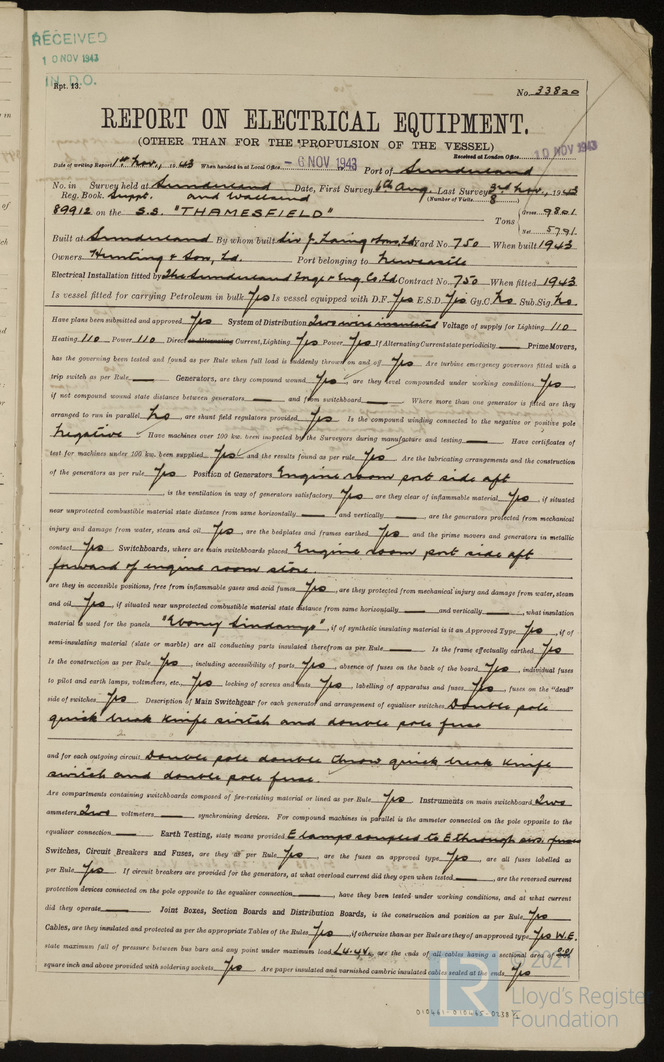 RECEIVED
10 NOV 1943
IN D.O.
Rpt. 13.
No. 33820
REPORT ON ELECTRICAL EQUIPMENT.
(OTHER THAN FOR THE PROPULSION OF THE VESSEL)
Received at London Office 10 NOV 1943
Date of writing Report 1st Nov., 1943 When handed in at Local Office - 6 NOV 1943 Port of Sunderland
No. in Survey held at Sunderland Date, First Survey 6th Aug. Last Survey 3rd Nov., 1943
Reg. Book. Suppt. and Wallsend (Number of Visits 8)
89912 on the S.S. "THAMESFIELD" Tons Gross 9801
Net 5791
Built at Sunderland By whom built Sir J. Laing & Sons, Ld Yard No. 750 When built 1943
Owners Hunting & Son, Ld. Port belonging to Newcastle
Electrical Installation fitted by The Sunderland Forge & Eng. Co. Ld Contract No. 750 When fitted 1943
Is vessel fitted for carrying Petroleum in bulk Yes Is vessel equipped with D.F. Yes E.S.D. Yes Gy.C. No Sub.Sig. No.
Have plans been submitted and approved Yes System of Distribution Two wire insulated Voltage of supply for Lighting 110
Heating 110 Power 110 Direct or Alternating Current, Lighting Yes Power Yes If Alternating Current state periodicity — Prime Movers,
has the governing been tested and found as per Rule when full load is suddenly thrown on and off Yes Are turbine emergency governors fitted with a
trip switch as per Rule — Generators, are they compound wound Yes, are they level compounded under working conditions Yes,
if not compound wound state distance between generators — and from switchboard — Where more than one generator is fitted are they
arranged to run in parallel No, are shunt field regulators provided Yes Is the compound winding connected to the negative or positive pole
Negative Have machines over 100 kw. been inspected by the Surveyors during manufacture and testing — Have certificates of
test for machines under 100 kw. been supplied Yes and the results found as per rule Yes Are the lubricating arrangements and the construction
of the generators as per rule Yes Position of Generators Engine room port side aft
, is the ventilation in way of generators satisfactory Yes are they clear of inflammable material Yes, if situated
near unprotected combustible material state distance from same horizontally — and vertically —, are the generators protected from mechanical
injury and damage from water, steam and oil Yes, are the bedplates and frames earthed Yes and the prime movers and generators in metallic
contact Yes Switchboards, where are main switchboards placed Engine room port side aft
forward of engine room store.
are they in accessible positions, free from inflammable gases and acid fumes Yes, are they protected from mechanical injury and damage from water, steam
and oil Yes, if situated near unprotected combustible material state distance from same horizontally — and vertically —, what insulation
material is used for the panels "Ebony Sindanyo", if of synthetic insulating material is it an Approved Type Yes, if of
semi-insulating material (slate or marble) are all conducting parts insulated therefrom as per Rule — Is the frame effectually earthed Yes
Is the construction as per Rule Yes, including accessibility of parts Yes, absence of fuses on the back of the board Yes, individual fuses
to pilot and earth lamps, voltmeters, etc. Yes locking of screws and nuts Yes, labelling of apparatus and fuses Yes, fuses on the "dead"
side of switches Yes Description of Main Switchgear for each generator and arrangement of equaliser switches Double pole
quick break knife switch and double pole fuse
and for each outgoing circuit Double pole double throw quick break knife
switch and double pole fuse.
Are compartments containing switchboards composed of fire-resisting material or lined as per Rule Yes Instruments on main switchboard Two
ammeters Two voltmeters — synchronising devices. For compound machines in parallel is the ammeter connected on the pole opposite to the
equaliser connection — Earth Testing, state means provided E lamps coupled to E through sws. fuses
Switches, Circuit Breakers and Fuses, are they as per Rule Yes, are the fuses an approved type Yes, are all fuses labelled as
per Rule Yes If circuit breakers are provided for the generators, at what overload current did they open when tested —, are the reversed current
protection devices connected on the pole opposite to the equaliser connection —, have they been tested under working conditions, and at what current
did they operate — Joint Boxes, Section Boards and Distribution Boards, is the construction and position as per Rule Yes
Cables, are they insulated and protected as per the appropriate Tables of the Rules Yes, if otherwise than as per Rule are they of an approved type Yes W.E.
state maximum fall of pressure between bus bars and any point under maximum load L 4.4v., are the ends of all cables having a sectional area of .01
square inch and above provided with soldering sockets Yes Are paper insulated and varnished cambric insulated cables sealed at the ends Yes
© 2021
LR
Lloyd's Register
Foundation
010461-010465-0238 1/2